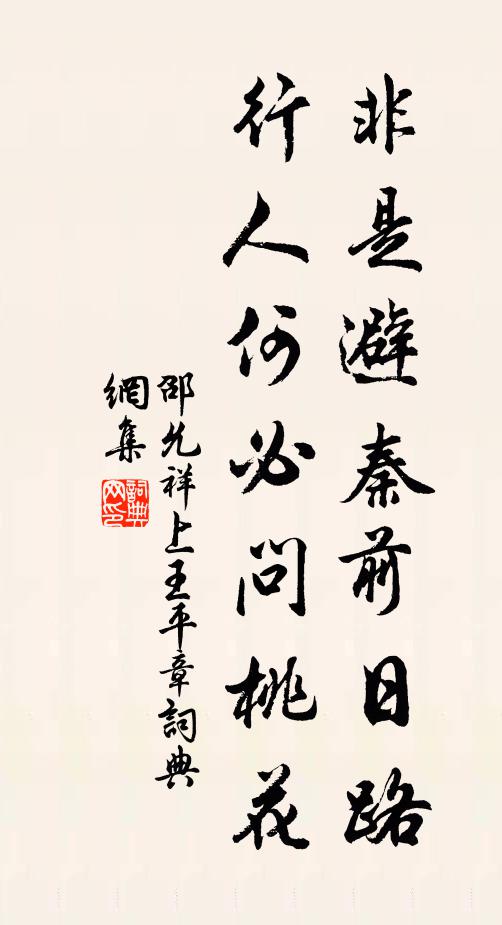 非是避秦前日路
行人何必問桃花
邵允祥上王平章詞典
網集
詞典
网印